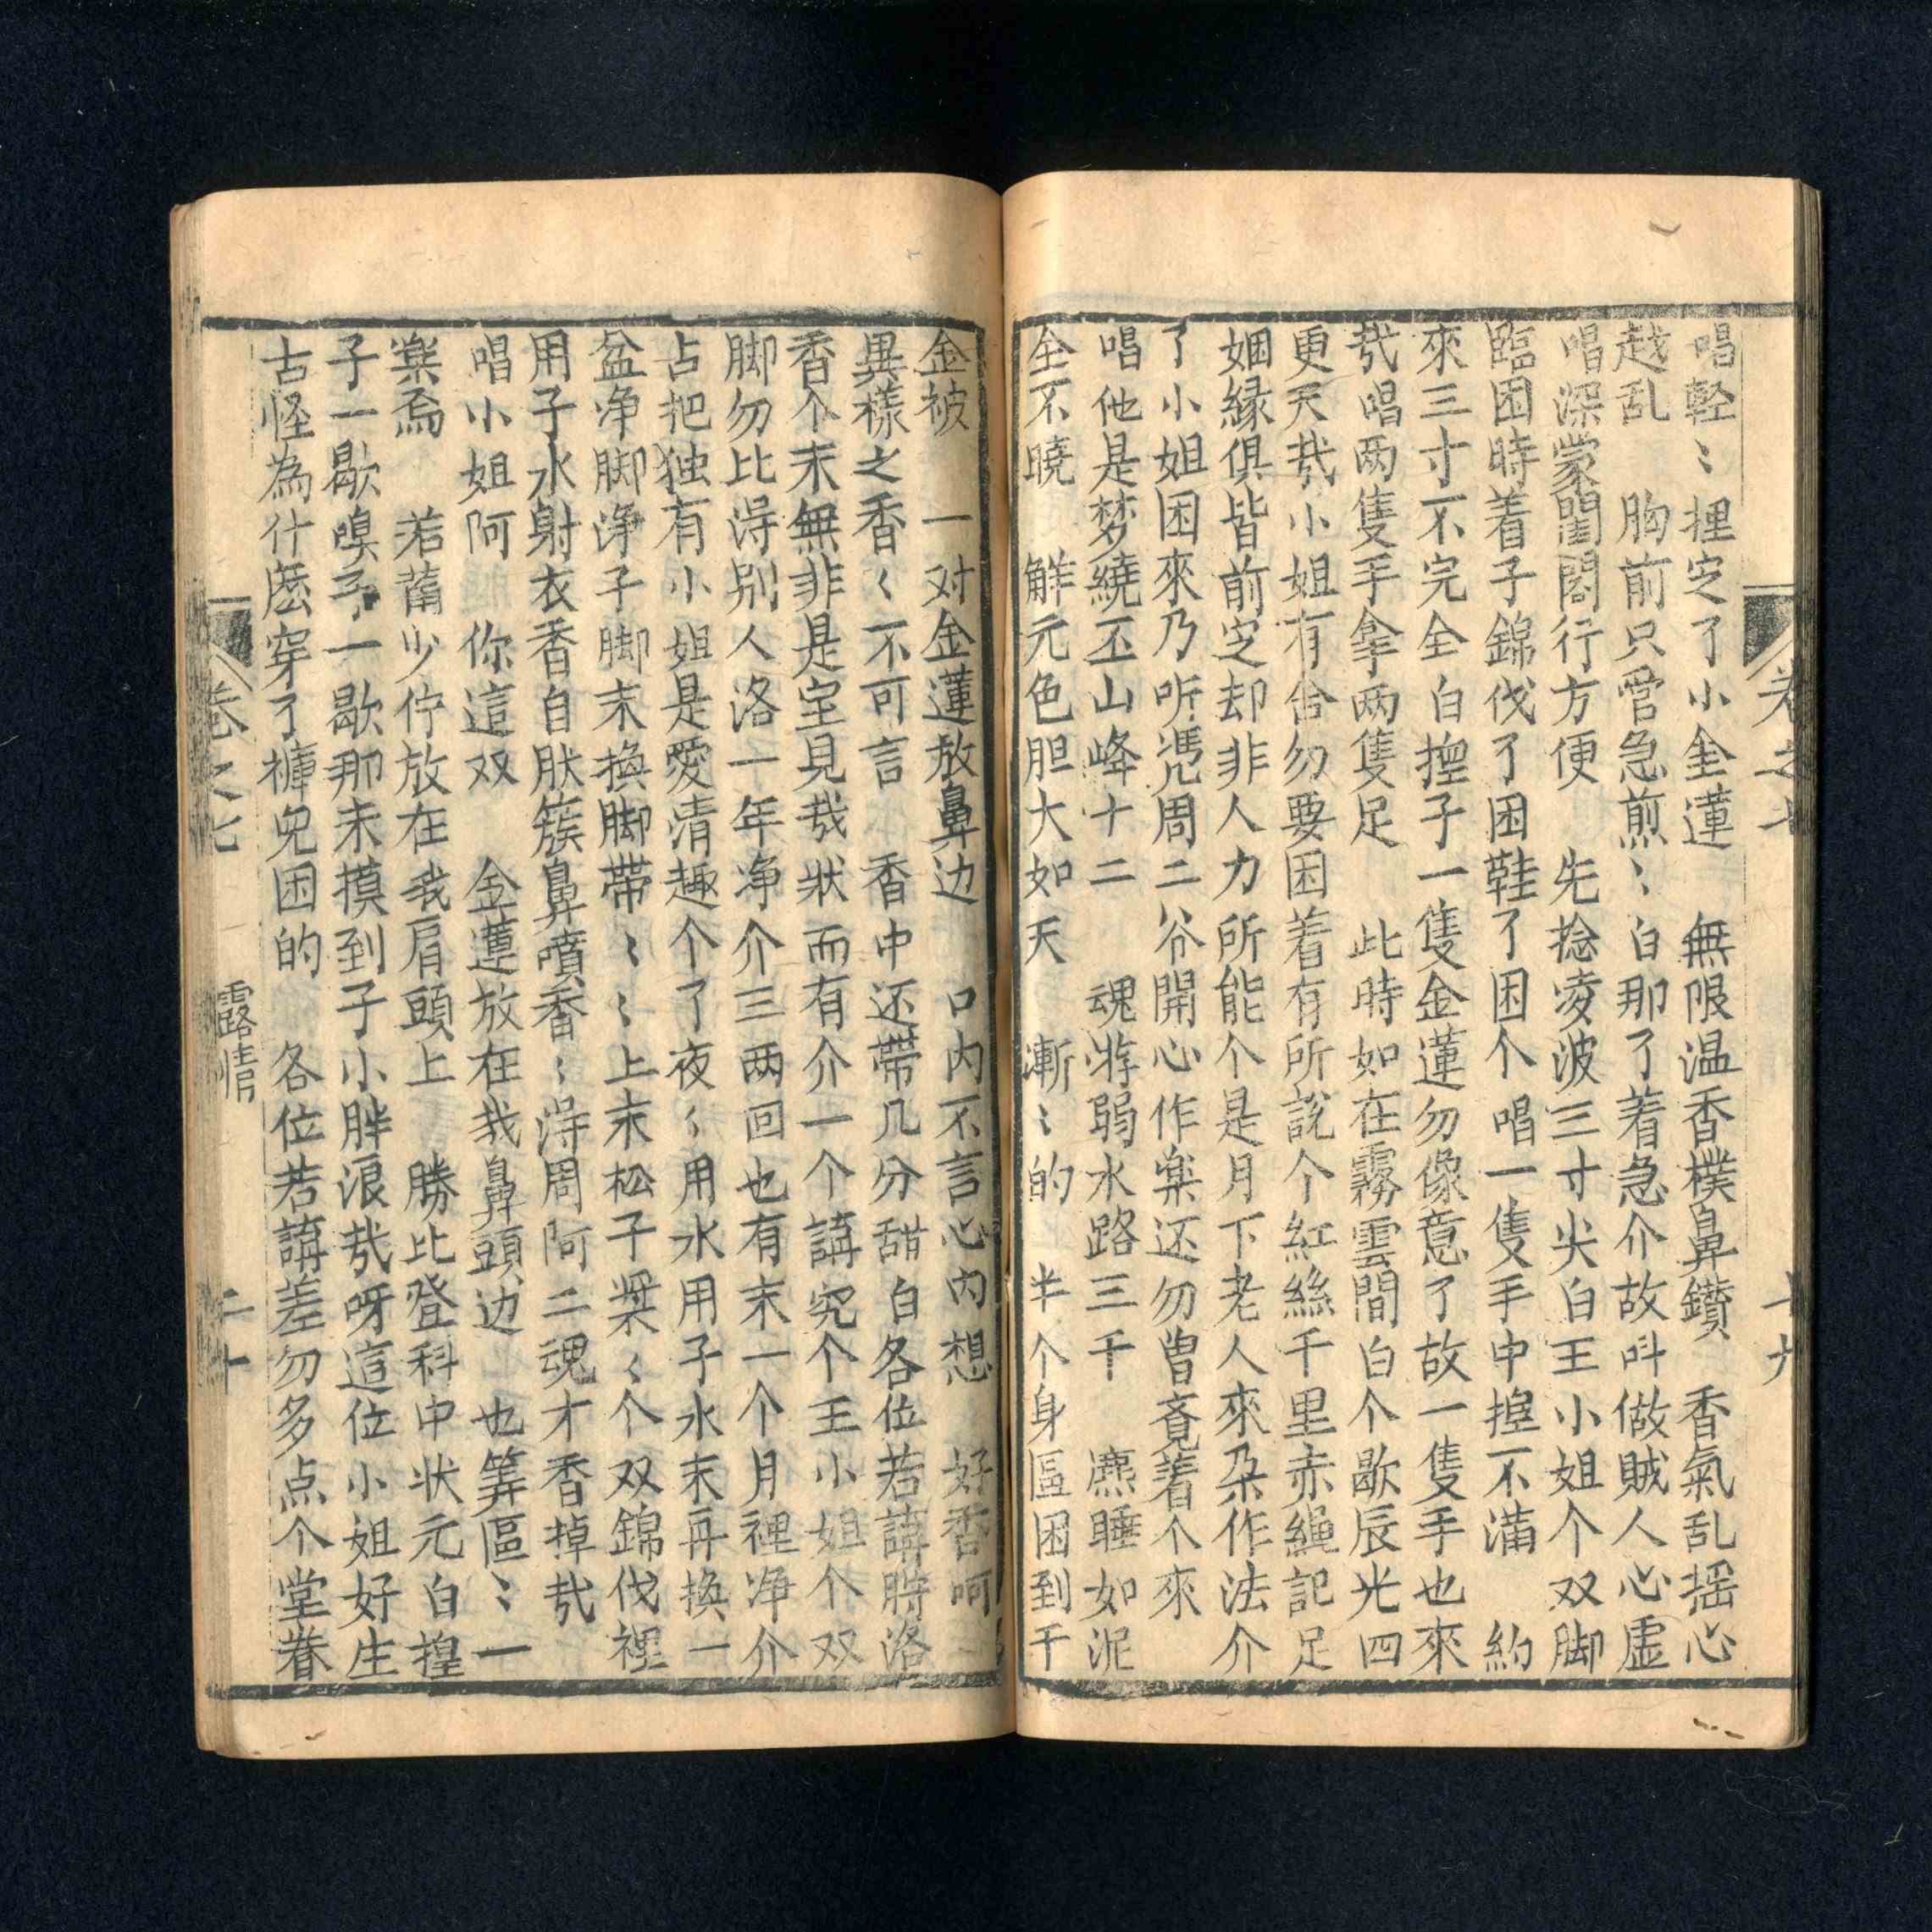 唱輕〻捏定了小金蓮　無限温香樸鼻鑽　香氣乱摇心
越乱　胸前只管急煎〻白那了着急介故呌做賊人心虛
唱深蒙閨閣行方便　先捻凌波三寸尖白王小姐个双脚
臨困時着子錦伐了困鞋了困个唱一隻手中揑不滿　約
來三寸不完全白揑子一隻金蓮勿像意了故一隻手也來
㢤唱两隻手拿两隻足　此時如在霧雲間白个歇辰光四
更天㢤小姐有合勿要困着有所說个紅絲千里赤繩記足
姻緣俱皆前定却非人力所能个是月下老人來朶作法介
了小姐困來乃听凴周二爷開心作楽还勿曽覔着个來
唱他是梦繞巫山峰十二　魂游弱水路三千　㷛睡如泥
全不曉　觧元色胆大如天　漸〻的　半个身區困到千
金被　一对金蓮放鼻边　口内不言心内想　好香呵
異樣之香〻不可言　香中还帶几分甜白各位若講脝洛
香个末無非是室見㢤狀而有介一个講究个王小姐个双
脚勿比淂别人洛一年净介三两回也有末一个月裡净介
占把独有小姐是愛清趣个了夜〻用水用子水末再換一
盆净脚净子脚末換脚帶〻〻上末松子粱〻个双錦伐裡
用子水射衣香自肰簇鼻噴香〻淂周阿二魂才香掉㢤
唱小姐阿　你這双　金蓮放在我鼻頭边　也筭區〻一
楽焉　若蒀少佇放在我肩頭上　勝比登科中状元白揑
子一歇嗅子一歇那末摸到子小胖浪㢤呀這位小姐好生
古怪為什麽穿了褲兒困的　各位若講差勿多点个堂眷
卷之七　露情　二十